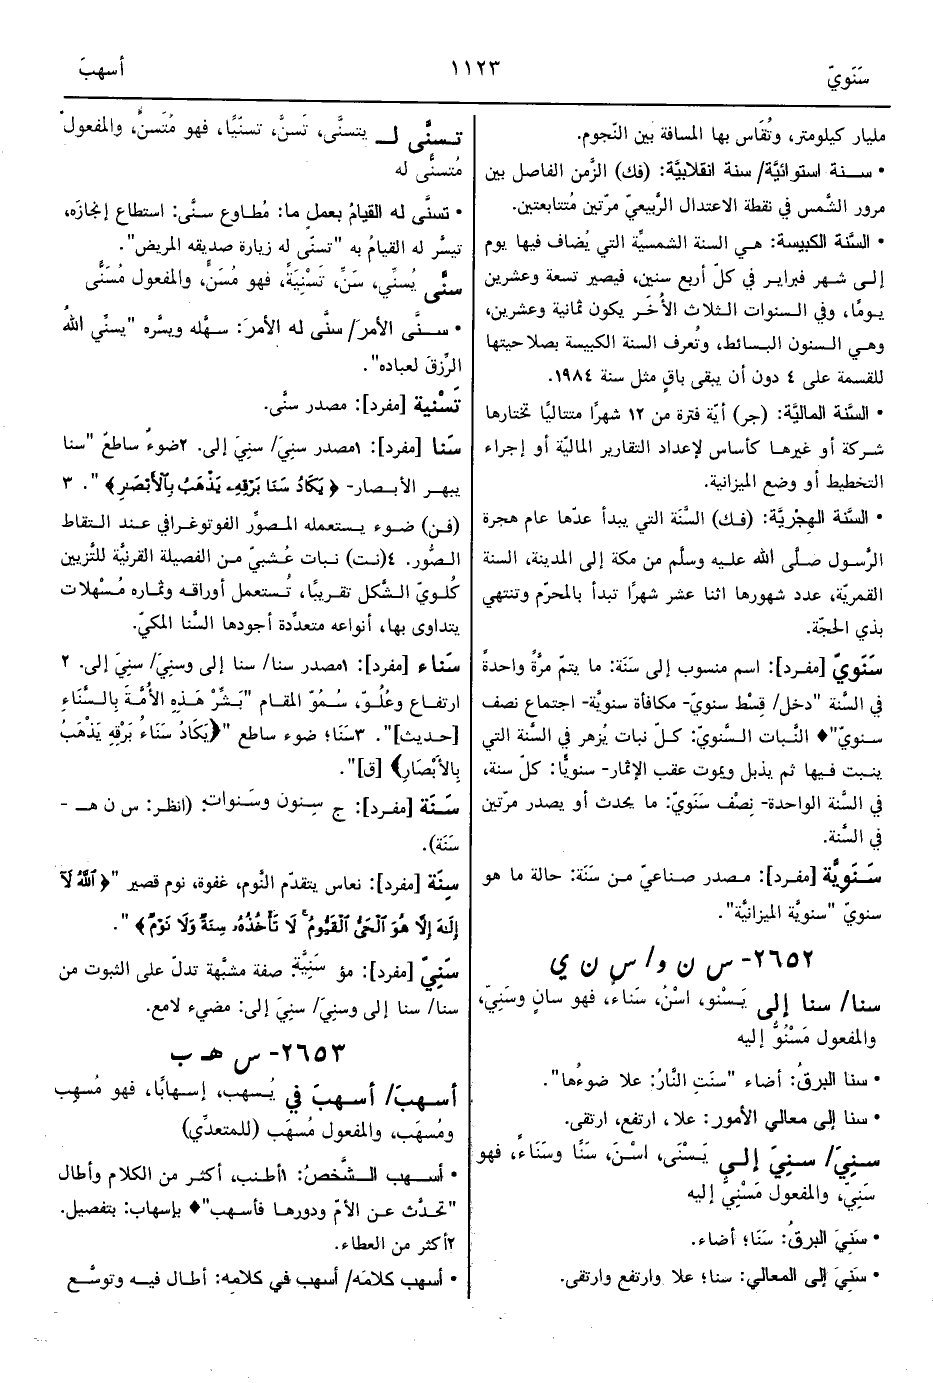 سَنَويّ
١١٢٣
أسهبَ
مليار كيلومتر، وتُقَاس بها المسافة بين النّجوم.
• سـنة استوائيَّة/ سنة انقلابيَّة: (فك) الزَّمن الفاصل بين
مرور الشَّمس في نقطة الاعتدال الرَّبيعيّ مرّتين مُتتابعتين.
• السَّنة الكبيسة: هـي السنة الشمسيَّة التي يُضاف فيها يوم
إلـى شهر فبراير في كلّ أربع سنين، فيصير تسعة وعشرين
يـومًا، وفي السنوات الثلاث الأُخَـر يكون ثمانية وعشرين،
وهـي السنون البـسائط، وتُعرف السنة الكبيسة بصلاحيتها
للقسمة على ٤ دون أن يبقى باقٍ مثل سنة ١٩٨٤.
• السَّنة الماليَّة: (جر) أيّة فترة من ١٢ شهرًا متتاليًا تختارها
شـركة أو غيرهـا كأساس لإعداد التقارير الماليّة أو إجراء
التخطيط أو وضع الميزانية.
• السَّنة الهِجْريَّة: (فـك) السَّنَة التي يبدأ عدّها عام هجرة
الرَّسول صلَّى الله عليه وسلَّم من مكة إلى المدينة، السنة
القمريَّة، عدد شهورها اثنا عشر شهرًا تبدأ بالمحرّم وتنتهي
بذي الحجّة.
سَنَويّ [مفـرد]: اسم منسوب إلى سَنَة: ما يتمّ مرَّةً واحدةً
في السَّنة "دخل/ قِسْط سنويّ- مكافأة سنويَّة- اجتماع نصف
سنويّ" ♦ النَّبات السَّنويّ: كـلّ نبات يُزهر في السَّنة التي
ينـبت فيـها ثم يذبل ويموت عقب الإثمار- سنويًّا: كلّ سنة،
في السَّنة الواحدة- نِصْف سَنَويّ: ما يحدث أو يصدر مرّتين
في السَّنة.
سَـنَويَّة [مفـرد]: مـصدر صـناعيّ مـن سَنَة: حالة ما هو
سنويّ "سنويَّة الميزانيَّة".
٢٦٥٢- س ن و/ س ن ي
سنا/ سنا إلى يَـسْنو، اسْنُ، سَناء، فهو سانٍ وسَنِيّ،
والمفعول مَسْنُوٌّ إليه
• سنا البرقُ: أضاء "سنَتِ النَّارُ: علا ضوءُها".
• سنا إلى معالي الأمور: علا، ارتفع، ارتقى.
سـنِيَ/ سـنِيَ إلـى يَـسْنَى، اسْنَ، سَنًا وسَناءً، فهو
سَنِيّ، والمفعول مَسْنِيٌّ إليه
• سَنِيَ البرقُ: سَنَا؛ أضاء.
• سَنِيَ إلى المعالي: سنا؛ علا وارتفع وارتقى.
تـسنَّى لـ يتسنَّى، تَسنَّ، تسنّيًا، فهو مُتَسنٍّ، والمفعول
مُتسنًّى له
• تسنَّى له القيامُ بعمل ما: مُطاوع سنَّى: استطاع إنجازه،
تيسَّر له القيامُ به "تسنَّى له زيارة صديقه المريض".
سنَّى يُسنِّي، سَنِّ، تَسْنِيَةً، فهو مُسَنٍّ، والمفعول مُسَنًّى
• سـنَّى الأمرَ/ سنَّى له الأمرَ: سهَّله ويسَّره "يسنِّي اللهُ
الرِّزقَ لعباده".
تَسْنية [مفرد]: مصدر سنَّى.
سَنا [مفرد]: ١مصدر سنِيَ/ سنِيَ إلى. ٢ضوءٌ ساطعٌ "سنا
يبهـر الأبـصار- ﴿يَكَادُ سَنَا بَرْقِهِۦ يَذْهَبُ بِٱلْأَبْصَٰرِ﴾". ٣
(فـن) ضـوء يـستعمله المـصوِّر الفوتوغرافي عنـد التقاط
الـصُّور. ٤(نت) نبات عُـشبيّ مـن الفصيلة القرنيَّة للتَّزيين
كُلـويّ الـشَّكل تقـريبًا، تُستعمل أوراقـه وثماره مُـسْهلات
يتداوى بها، أنواعه متعدِّدة أجودها السَّنا المكيّ.
سَناء [مفرد]: ١مصدر سنا/ سنا إلى وسنِيَ/ سنِيَ إلى. ٢
ارتفـاع وعُلُـوّ، سُمُوّ المقـام "بَشِّرْ هَـذِهِ الأُمَّـةَ بِالسَّنَاءِ
[حـديث]". ٣سَنَا؛ ضوء ساطع "﴿يَكَادُ سَنَاءُ بَرْقِهِ يَذْهَبُ
بِالأَبْصَارِ﴾ [ق]".
سَـنَة [مفـرد]: ج سِـنون وسَنَوات: (انظر: س ن هـ -
سَنَة).
سِنة [مفرد]: نعاس يتقدّم النَّوم، غفوة، نوم قصير "﴿ٱللَّهُ لَآ
إِلَٰهَ إِلَّا هُوَ ٱلْحَيُّ ٱلْقَيُّومُ ۚ لَا تَأْخُذُهُۥ سِنَةٌ وَلَا نَوْمٌ﴾".
سَنِيّ [مفرد]: مؤ سَنِيَّة: صفة مشبَّهة تدلّ على الثبوت من
سنا/ سنا إلى وسنِيَ/ سنِيَ إلى: مضيء لامع.
٢٦٥٣- س هـ ب
أسهبَ/ أسهبَ في يُسهب، إسهابًا، فهو مُسهِب
ومُسهَب، والمفعول مُسهَب (للمتعدِّي)
• أسـهب الـشَّخصُ: ١أطنب، أكثـر من الكلام وأطال
"تحدَّث عـن الأمّ ودورهـا فأسهب" ♦ بإسهاب: بتفصيل.
٢أكثر من العطاء.
• أسهب كلامَه/ أسهب في كلامِه: أطال فيه وتوسَّع